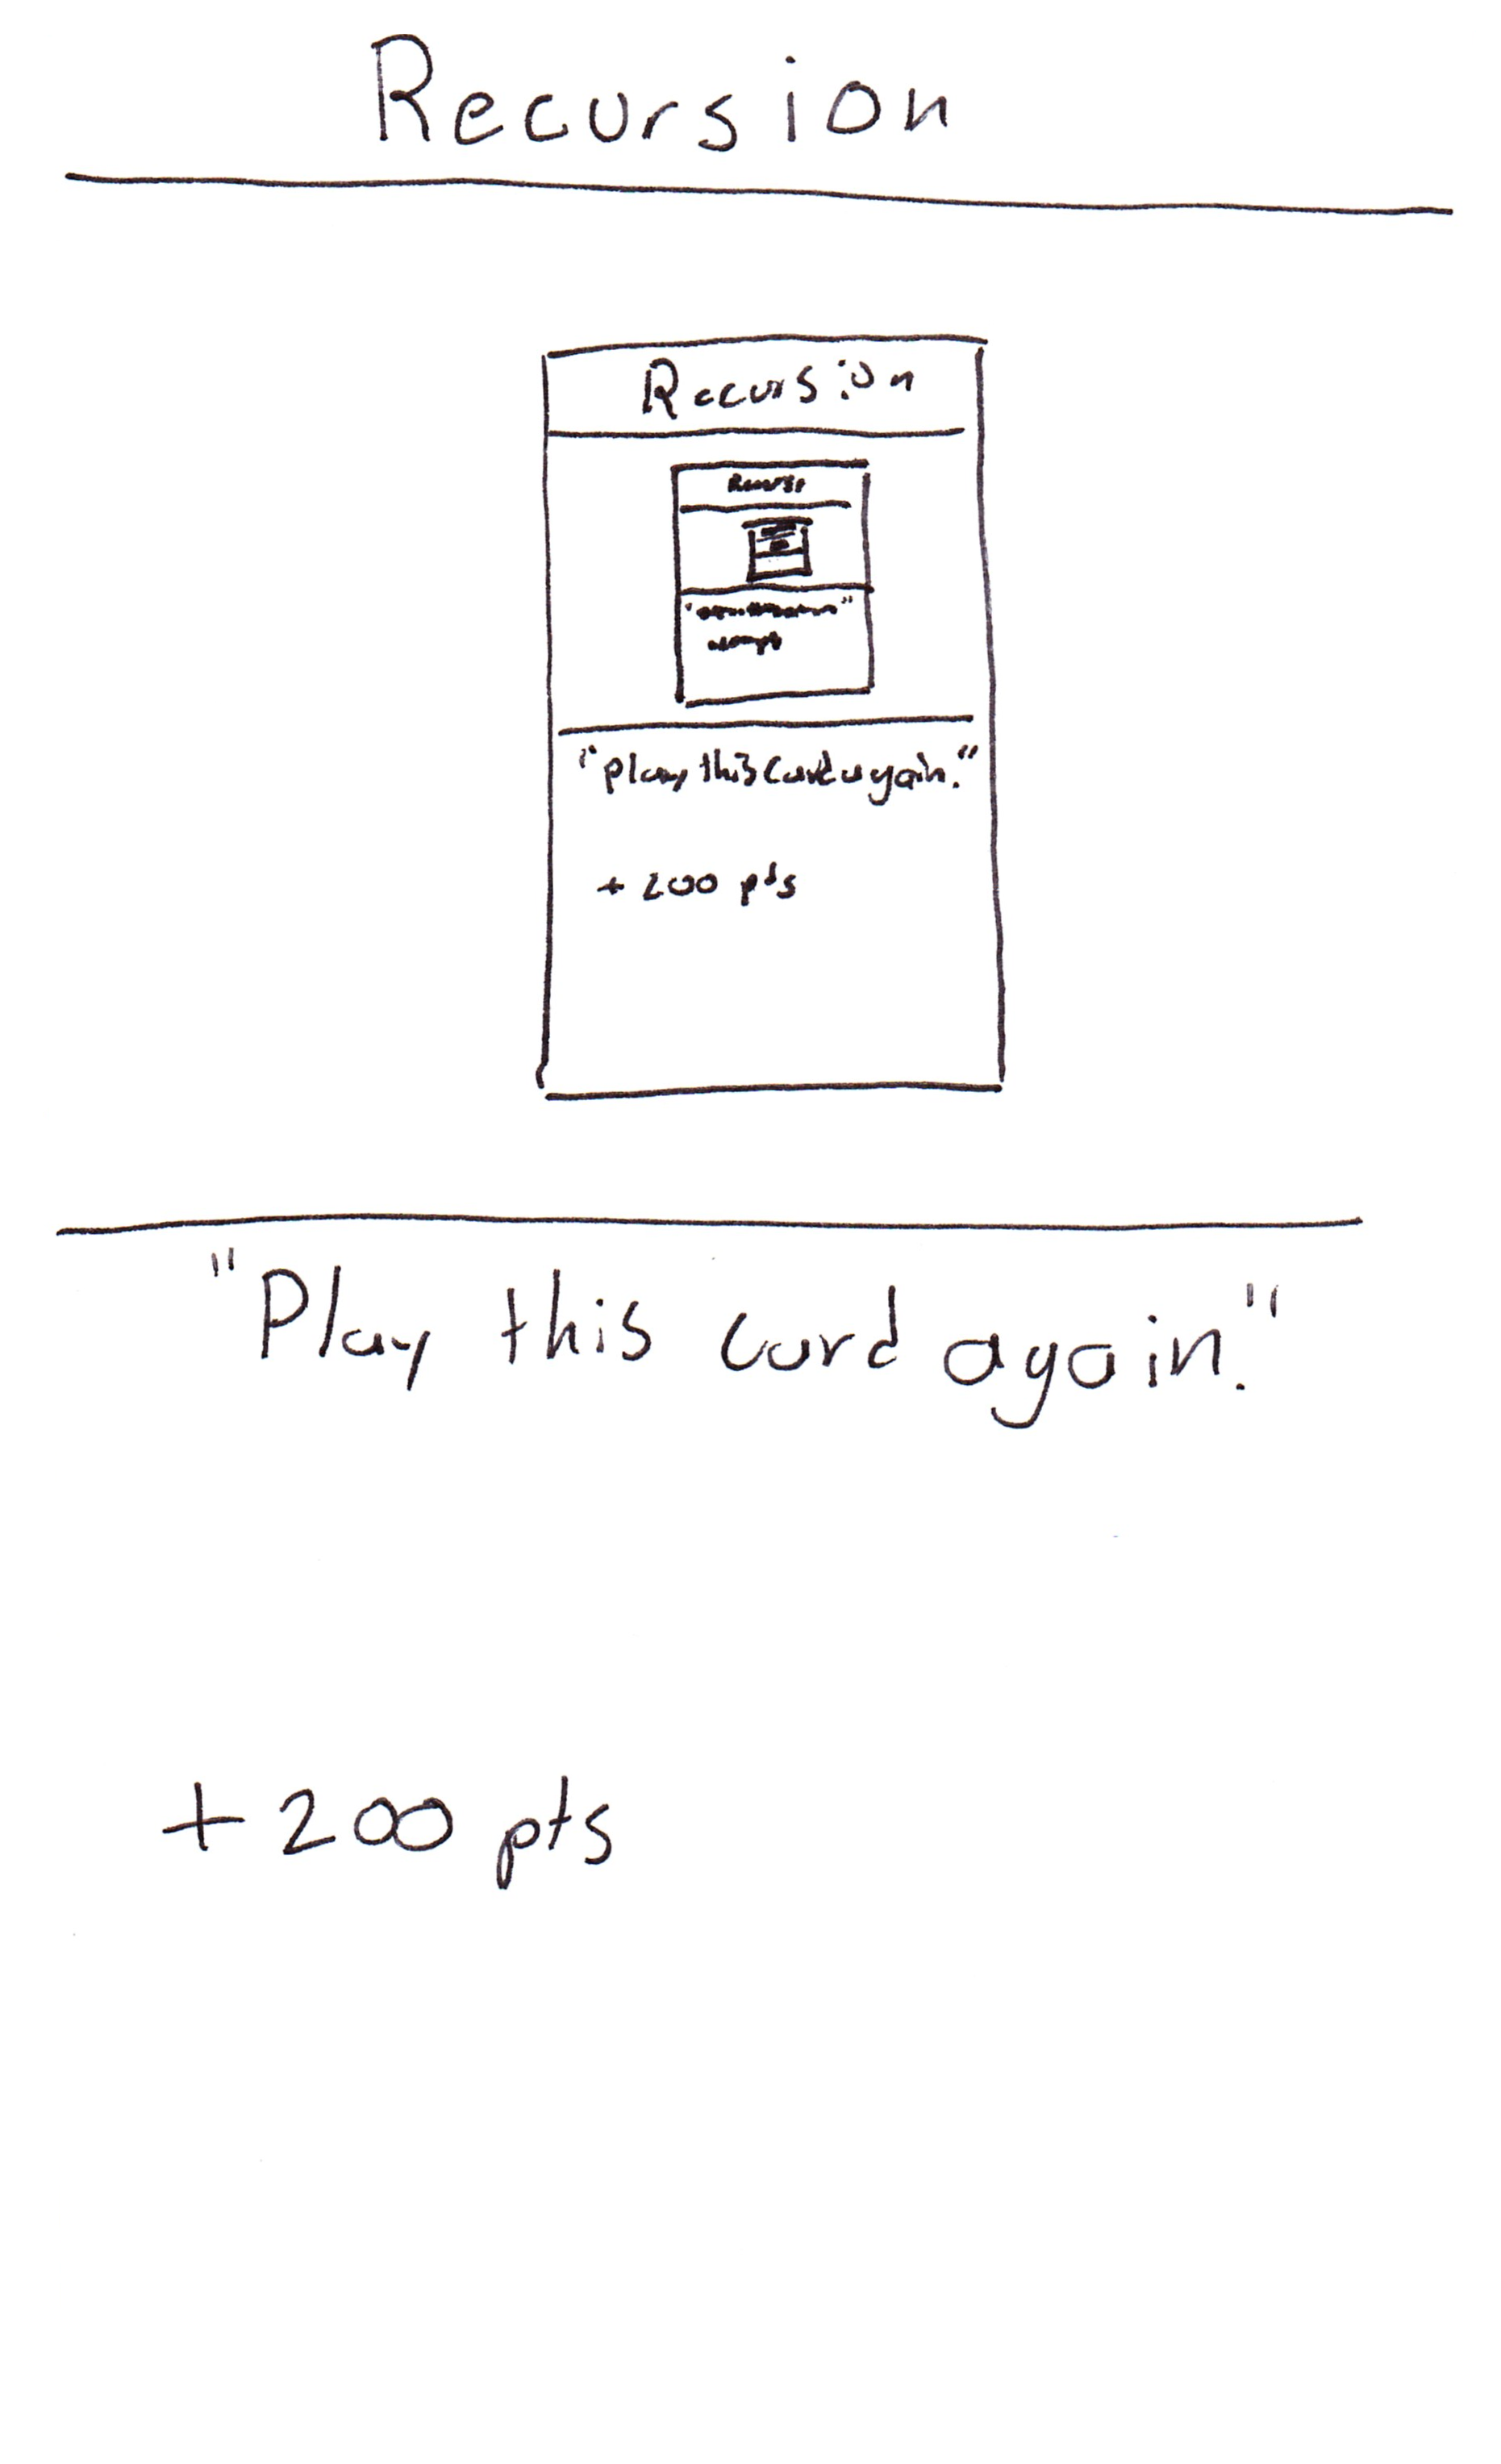 Recursion
Recursion
"play this card again."
+ 200 pts
"Play this card again."
+ 200 pts